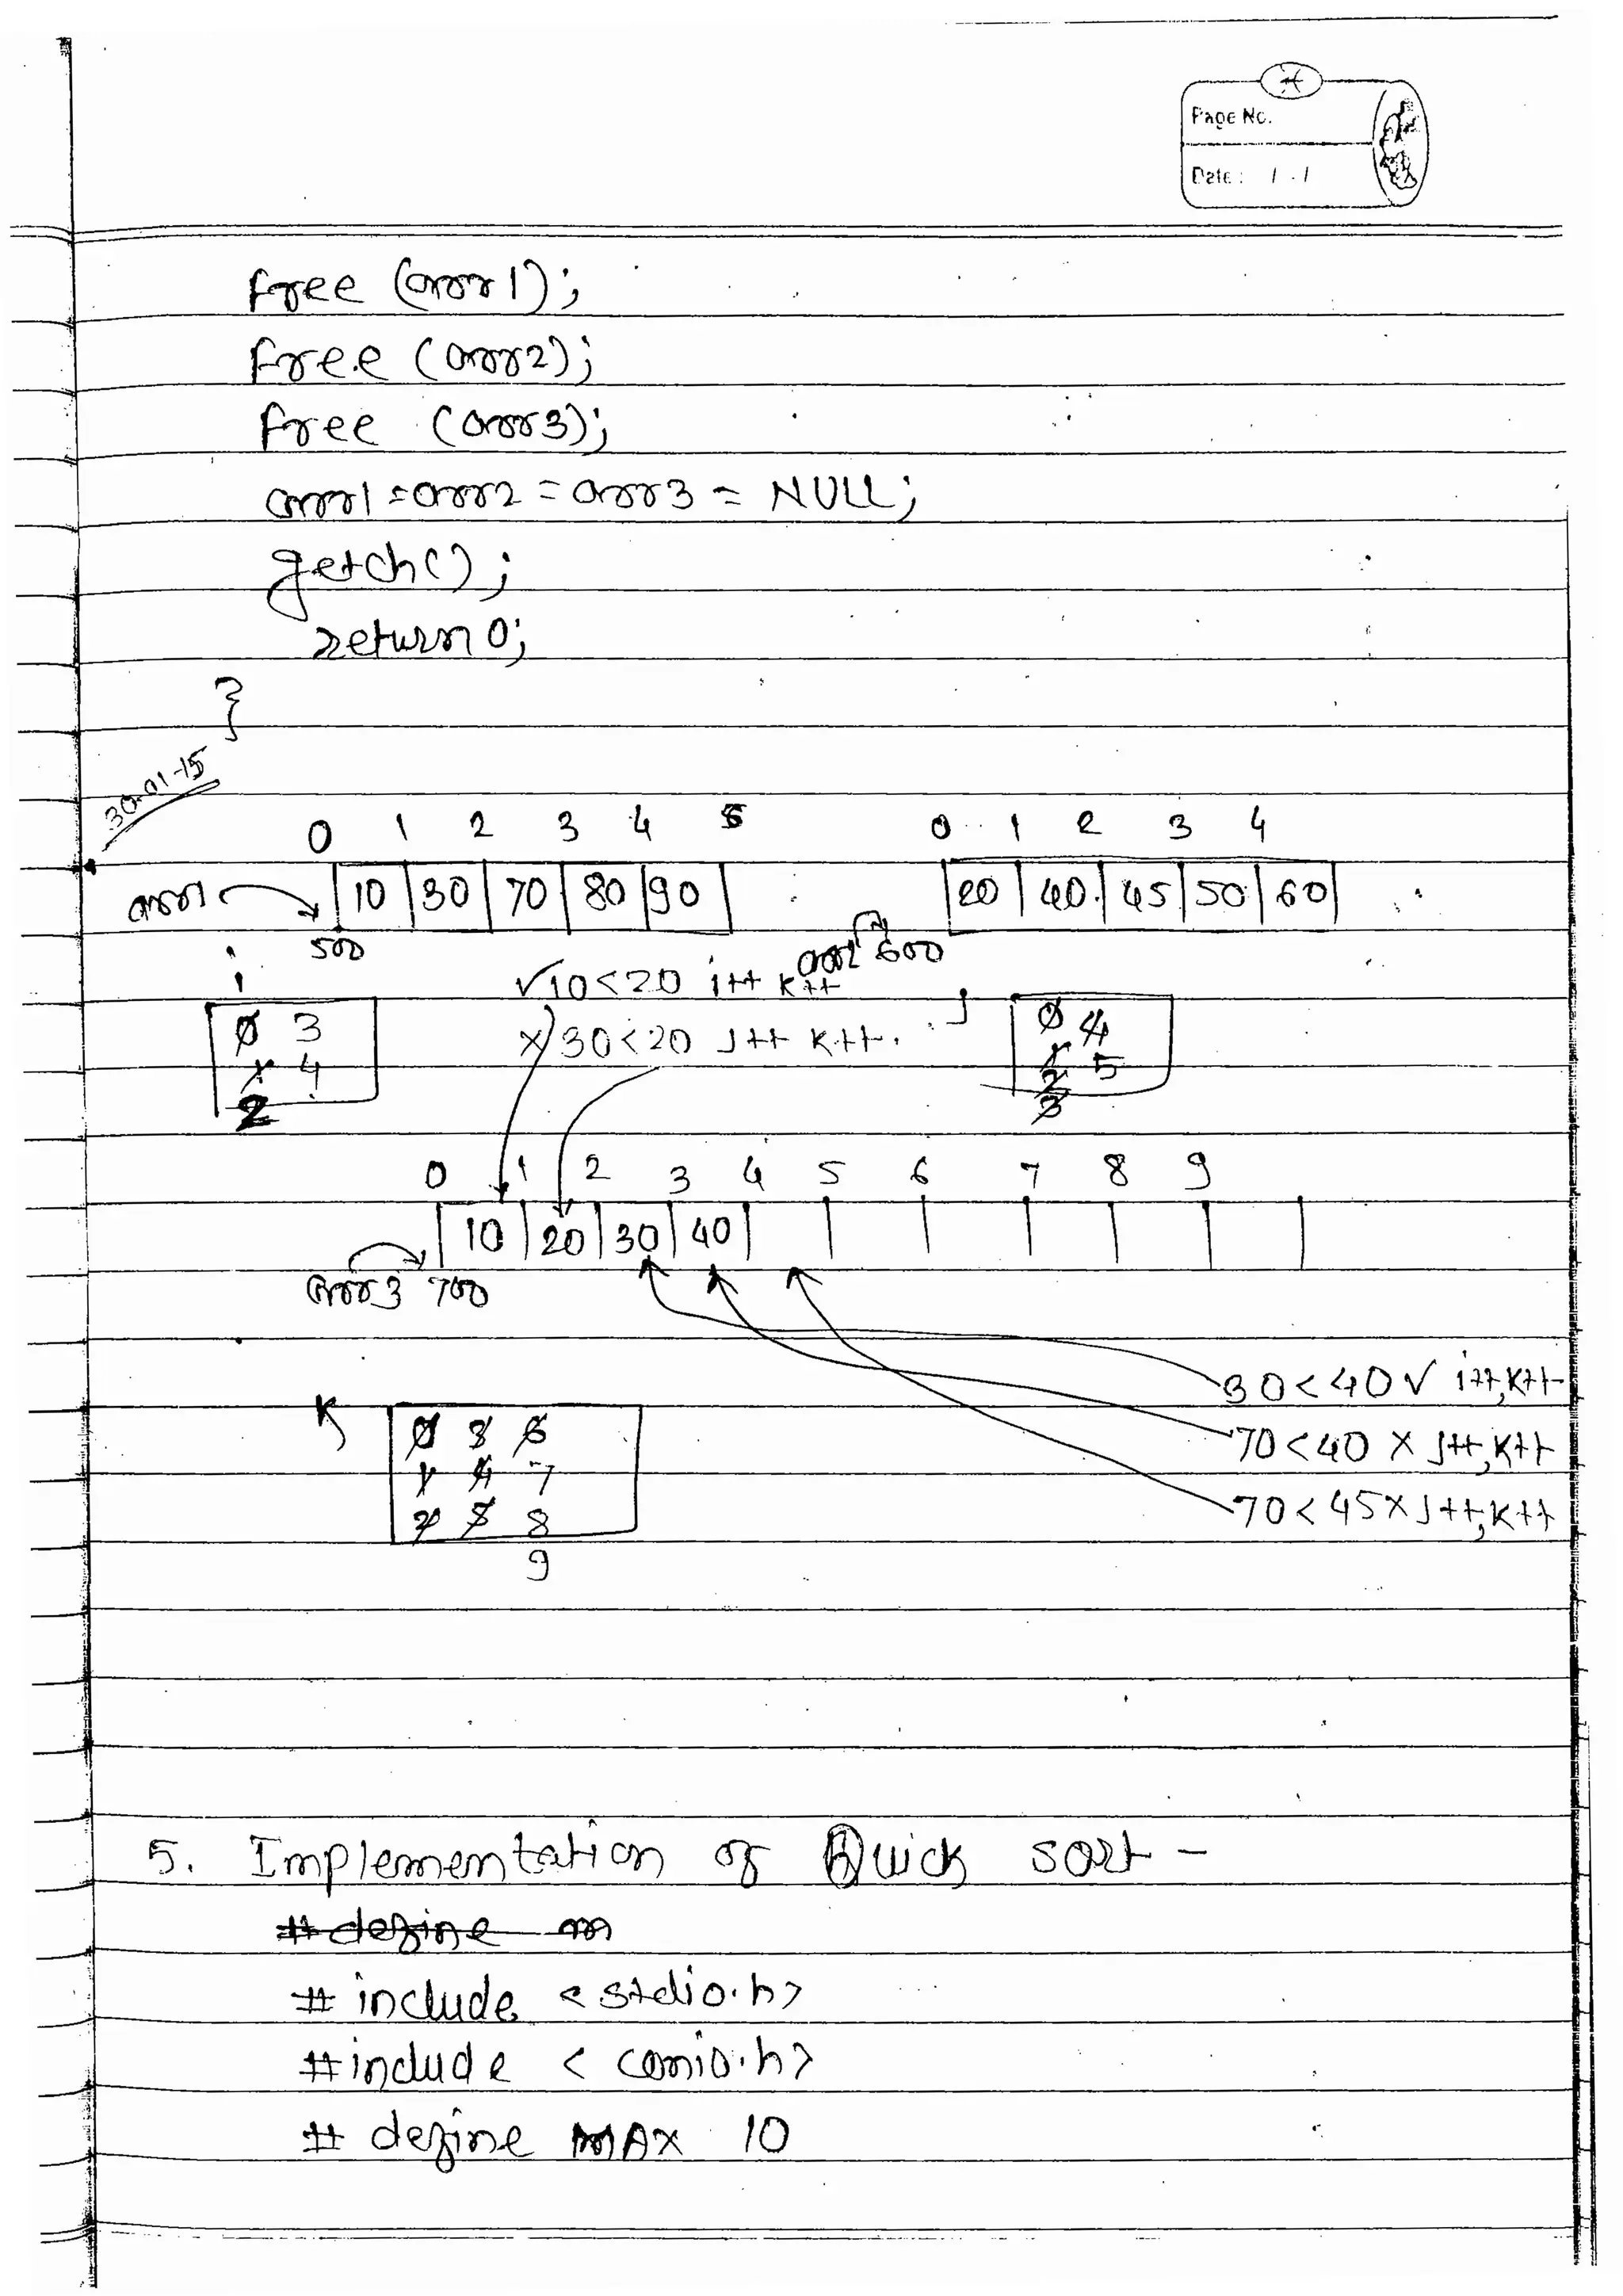 Page No.
Date : / . /
free (arr1);
free (arr2);
free (arr3);
arr1 = arr2 = arr3 = NULL;
getch();
return 0;
}
30-01-15
0 1 2 3 4 5 0 1 2 3 4
arr1 10 30 70 80 90 20 40 45 50 60
500 arr2 600
i √10<20 i++ k++ j
0 3 x 30<20 J++ K++. 0 4
1 4 1 5
2 2
3
0 1 2 3 4 5 6 7 8 9
10 20 30 40
arr3 700
30<40√ i++,K++
K 0 3 6 70<40 x J++,K++
1 4 7
2 5 8 70<45x J++,K++
9
5. Implementation of Quick sort -
# define m
# include <stdio.h>
#include <conio.h>
# define MAX 10